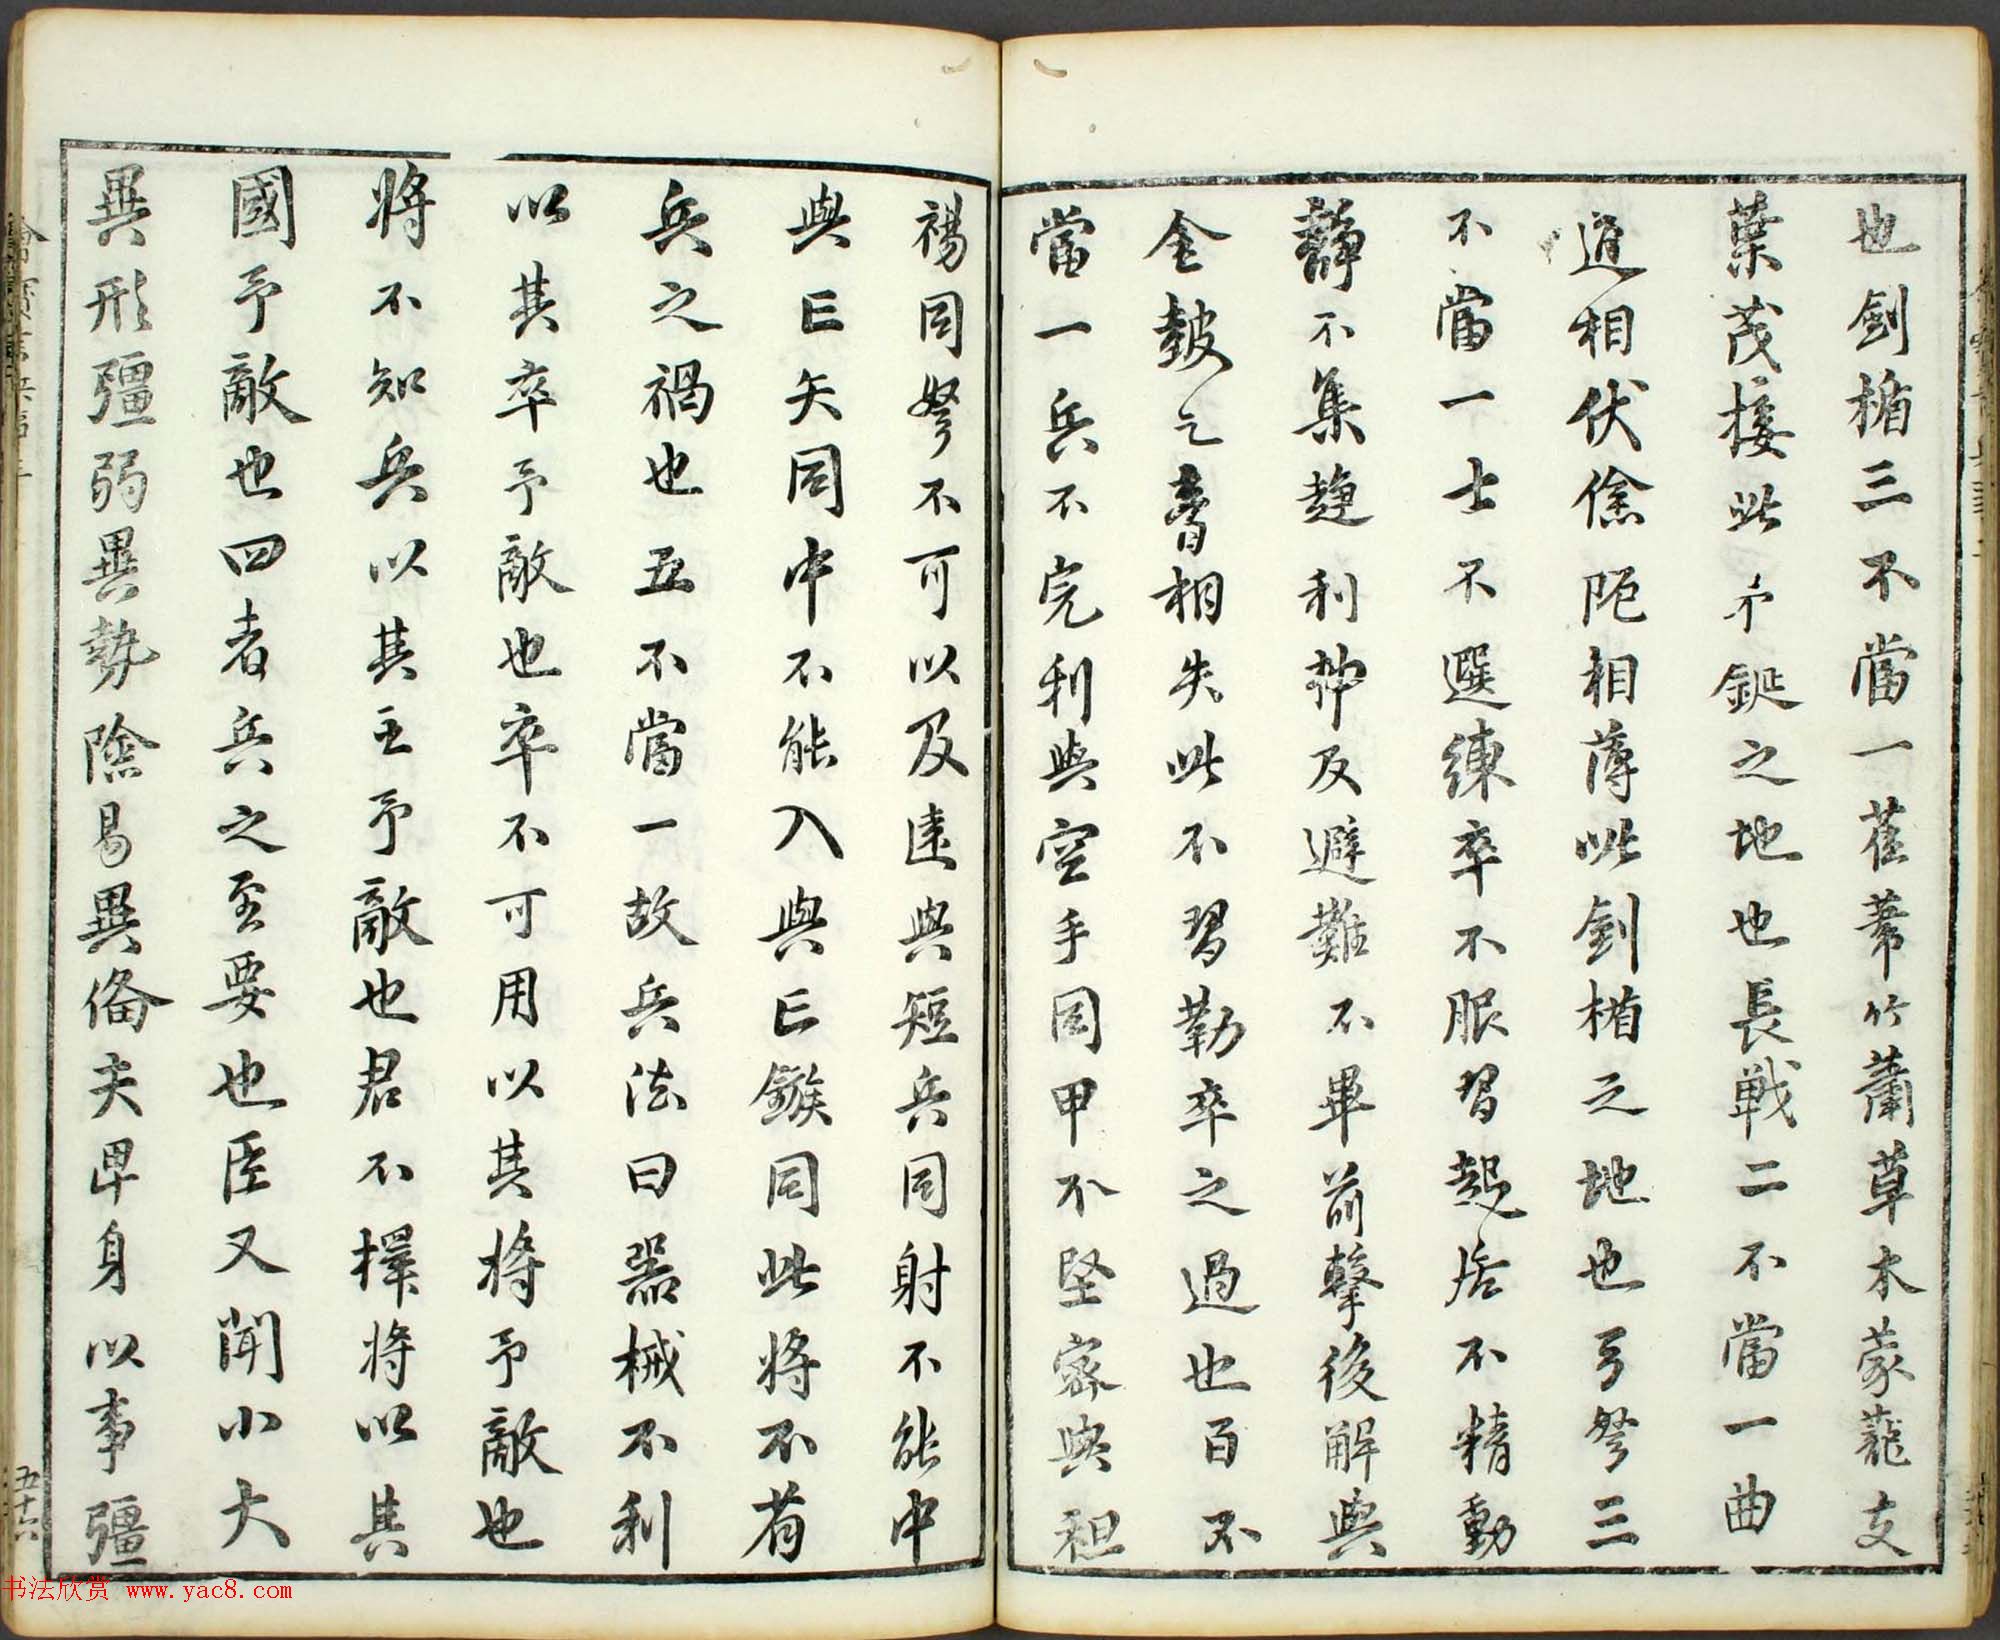 也劍楯三不當一萑葦竹蕭草木蒙蘢支
葉茂接此矛鋋之地也長戟二不當一曲
道相伏險阨相薄此劍楯之地也弓弩三
不當一士不選練卒不服習起居不精動
靜不集趨利弗及避難不畢前擊後解與
金鼓之音相失此不習勒卒之過也百不
當一兵不完利與空手同甲不堅密與袒
裼同弩不可以及遠與短兵同射不能中
與亡矢同中不能入與亡鏃同此將不省
兵之禍也五不當一故兵法曰器械不利
以其卒予敵也卒不可用以其將予敵也
將不知兵以其主予敵也君不擇將以其
國予敵也四者兵之至要也臣又聞小大
異形彊弱異勢險易異備夫卑身以事彊
五十六
书法欣赏 www.yac8.com